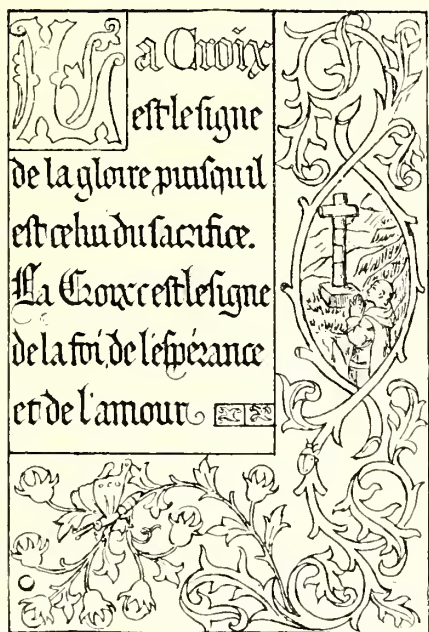 La Croix
est le signe
de la gloire puisqu'il
est celui du sacrifice.
La Croix c'est le signe
de la foi, de l'espérance
et de l'amour